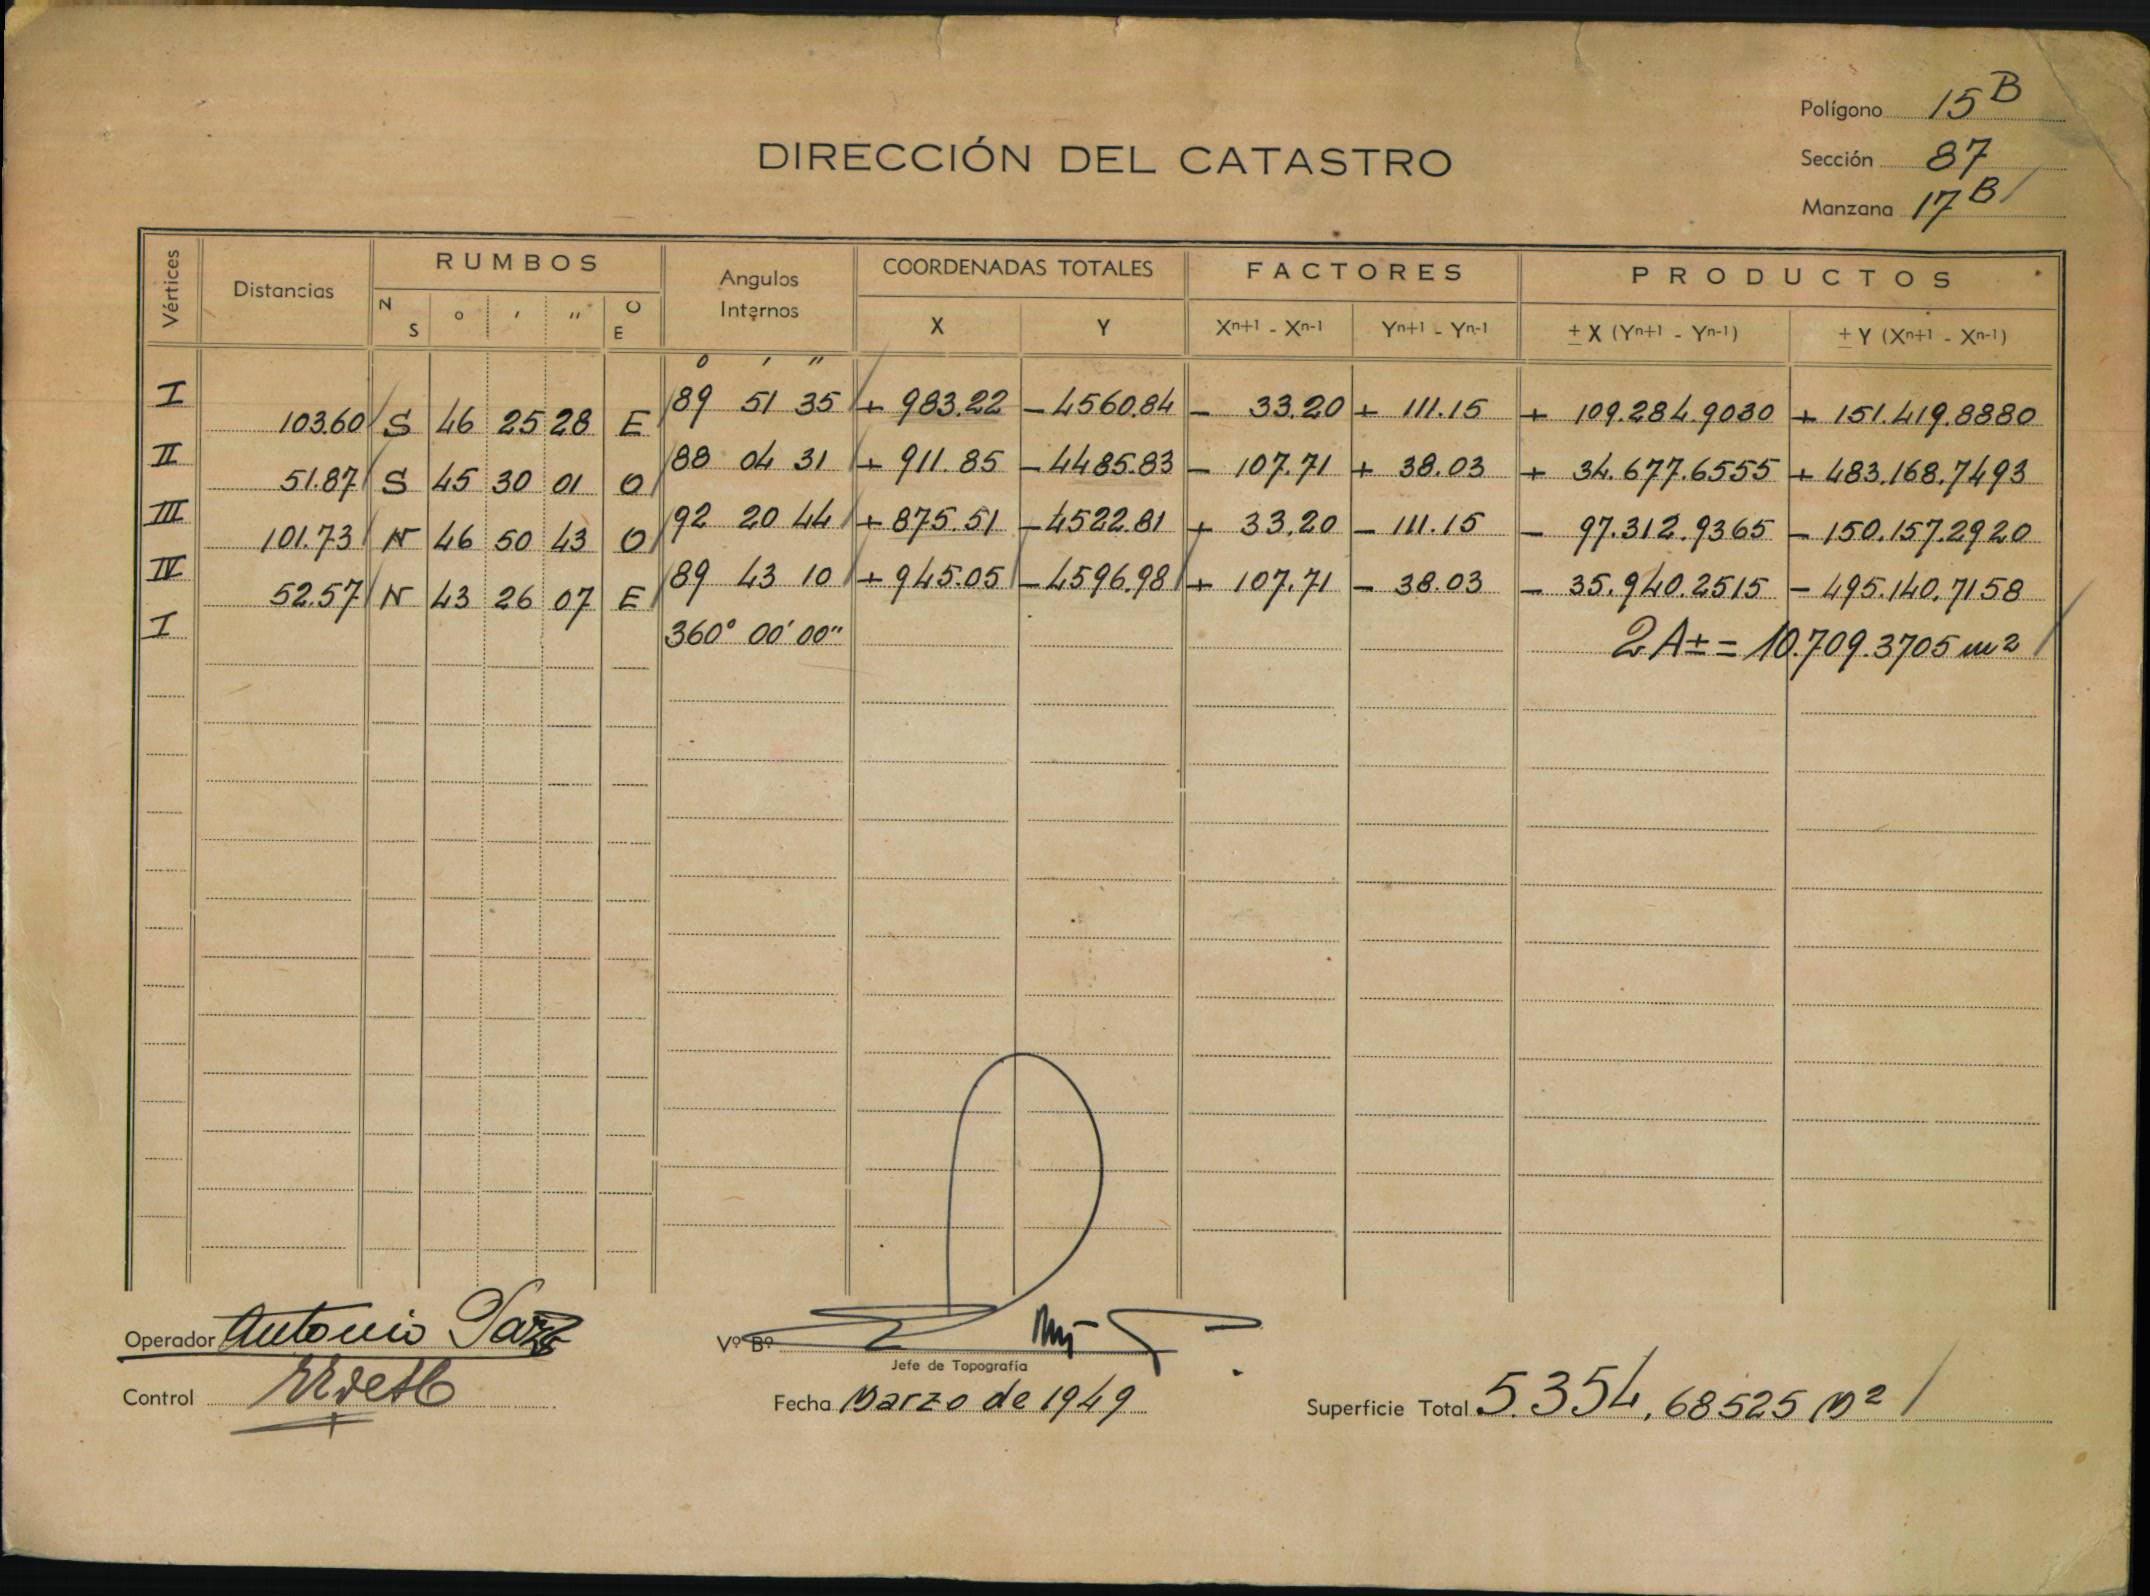 Polígono 15 B
DIRECCIÓN DEL CATASTRO
Sección 87
Manzana 17 B
Vértices Distancias RUMBOS Angulos Internos COORDENADAS TOTALES FACTORES PRODUCTOS
N S ° ' " O E X Y Xn+1 - Xn-1 Yn+1 - Yn-1 ± X (Yn+1 - Yn-1) ± Y (Xn+1 - Xn-1)
° ' "
I 89 51 35 + 983.22 - 4560.84 - 33.20 + 111.15 + 109.284.9030 + 151.419.8880
103.60 S 46 25 28 E
II 88 04 31 + 911.85 - 4485.83 - 107.71 + 38.03 + 34.677.6555 + 483.168.7493
51.87 S 45 30 01 O
III 92 20 44 + 875.51 - 4522.81 + 33.20 - 111.15 - 97.312.9365 - 150.157.2920
101.73 N 46 50 43 O
IV 89 43 10 + 945.05 - 4596.98 + 107.71 - 38.03 - 35.940.2515 - 495.140.7158
52.57 N 43 26 07 E
I 360° 00' 00" 2A± = 10.709.3705 m2
Operador Antonio
Vº Bº
Jefe de Topografía
Control
Fecha Marzo de 1949
Superficie Total 5.354.68525 M2